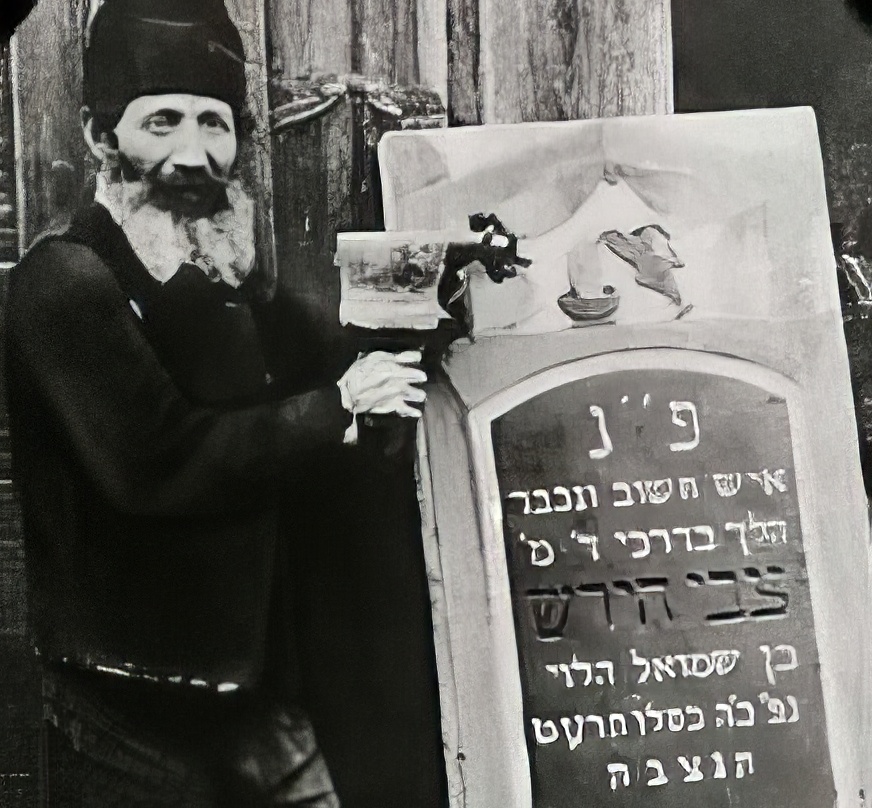 פ״נ
איש חשוב ונכבד
הלך בדרכי ד' מ'
צבי הירש
בן שמואל הלוי
נפ' כ"ה כסלו תרעט
תנצבה